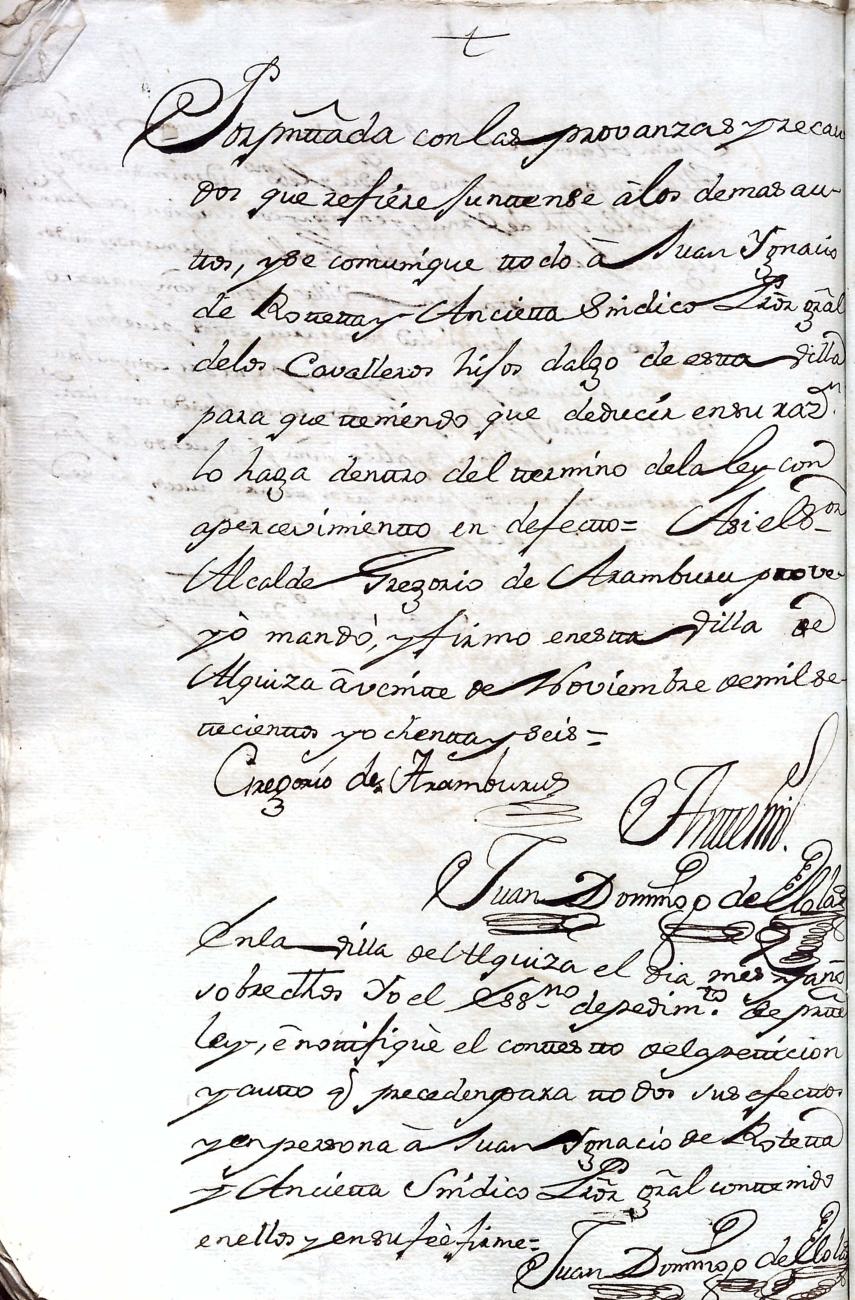 Por presentada con las provanzas y recau
dos que refiere juntense â los demas au-
ttos, y se comunique ttodo â Juan Ygnacio
de Rotetta y Ancietta Sindico Prõr grãl
delos Cavalleros hijos dalgo de esta Villa
para que tteniendo que deducir ensu razon
lo haga dentro del ttermino dela ley con
apercevimientto en defectto= Asi el Sor
Alcalde Gregorio de Aramburu prove-
yò mandò, y firmo enesta Villa de
Alquiza â veintte de Noviembre demil se-
ttecienttos y ochentta y seis=
Gregorio de Aramburu
Anttemi.
Juan Domingo de Elola
Enla Villa de Alquiza el dia mes y año
sobredhos Yo el Essno depedimto de partte
ley, è nottifiquè el conttestto dela petticion
y autto q preceden para ttodos sus efecttos
y en persona â Juan Ygnacio de Rotetta
y Ancietta Sindico Prõr grãl conttenido
enellos y ensu feè firme=
Juan Domingo de Elola